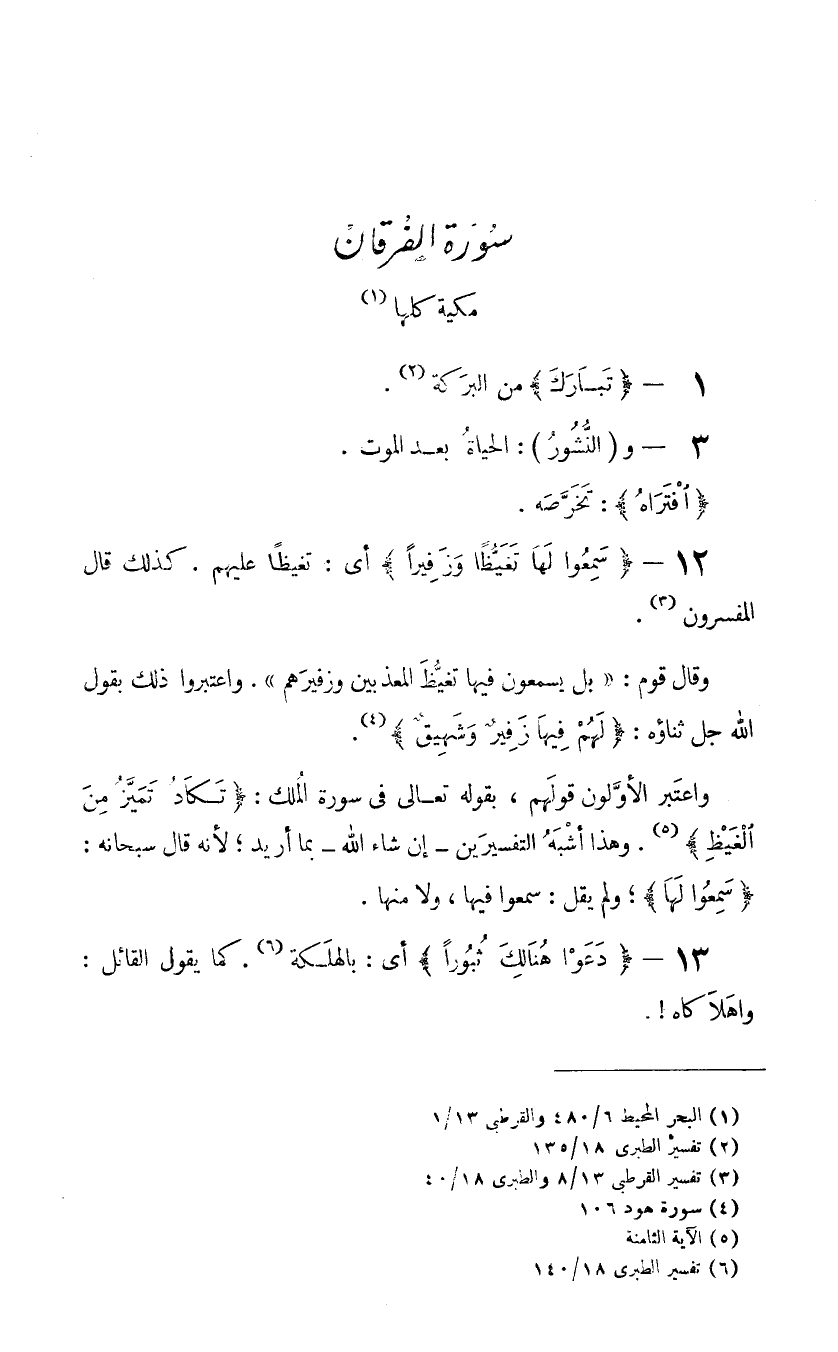 سُورَة الفُرقان
مكية كلها (١)
١ — ﴿ تَبَارَكَ ﴾ من البرَكة (٢) .
٣ — و ( النُّشُورُ ) : الحياةُ بعد الموت .
﴿ اُفْتَرَاهُ ﴾ : تَخَرَّصَه .
١٢ — ﴿ سَمِعُوا لَهَا تَغَيُّظًا وَزَفِيراً ﴾ أى : تغيظًا عليهم . كذلك قال
المفسرون (٣) .
وقال قوم : « بل يسمعون فيها تغيُّظَ المعذبين وزفيرَهم » . واعتبروا ذلك بقول
الله جل ثناؤه : ﴿ لَهُمْ فِيهَا زَفِيرٌ وَشَهِيقٌ ﴾ (٤) .
واعتَبر الأوَّلون قولَهم ، بقوله تعالى فى سورة الْمُلك : ﴿ تَكَادُ تَمَيَّزُ مِنَ
اَلْغَيْظِ ﴾ (٥) . وهذا أشْبَهُ التفسيرَين – إن شاء الله – بما أريد ؛ لأنه قال سبحانه :
﴿ سَمِعُوا لَهَا ﴾ ؛ ولم يقل : سمعوا فيها ، ولا منها .
١٣ — ﴿ دَعَوْا هُنَالِكَ ثُبُوراً ﴾ أى : بالهلَكة (٦) . كما يقول القائل :
واهَلاَكاه ! .
(١) البحر المحيط ٤٨٠/٦ والقرطبى ١/١٣
(٢) تفسير الطبرى ١٣٥/١٨
(٣) تفسير القرطبى ٨/١٣ والطبرى ٤٠/١٨
(٤) سورة هود ١٠٦
(٥) الآية الثامنة
(٦) تفسير الطبرى ١٤٠/١٨